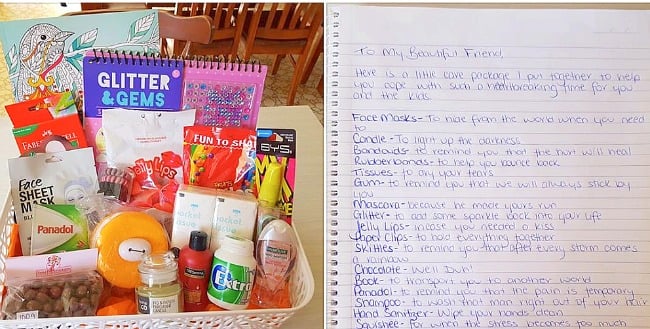 GLITTER
& GEMS
FABER
Jelly Lips
FUN TO SHA
BYS
Face
SHEET
MASK
PANADOL
pocket
tissue
pocket
tissue
Extra
To My Beautiful Friend,
Here is a little care package I put together to help
you cope with such a heartbreaking time for you
and the kids.
Face Masks - To hide from the world when you need
to
Candle - To light up the darkness
Bandaids - to remind you that the hurt will heal
Rubberbands - to help you bounce back
Tissues - to dry your tears
Gum - to remind you that we will always stick by
you
Mascara - because he made yours run
Glitter - to add some sparkle back into your life
Jelly Lips - incase you needed a kiss
Paper Clips - to hold everything together
Skittles - to remind you that after every storm comes
a rainbow
Chocolate - Well Duh!
Book - to transport you to another world
Panadol - to remind you that the pain is temporary
Shampoo - to wash that man right out of your hair
Hand Sanitizer - Wipe your hands clean
Squishee - For when the stress becomes too much